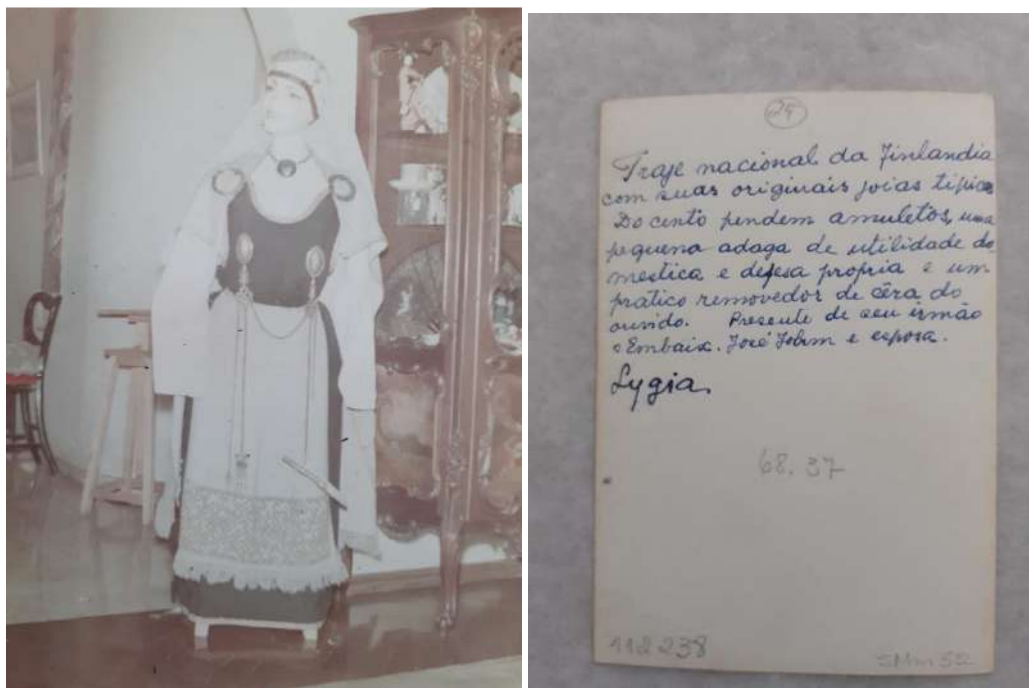 24
Traje nacional da Finlandia
com suas originais joias tipicas
Do cento pendem amuletos, uma
pequena adaga de utilidade do
mestica e defesa propria e um
pratico removedor de cêra do
ouvido. Presente de seu irmão
o Embaix. José Jobim e esposa.
Lygia
68.37
112238